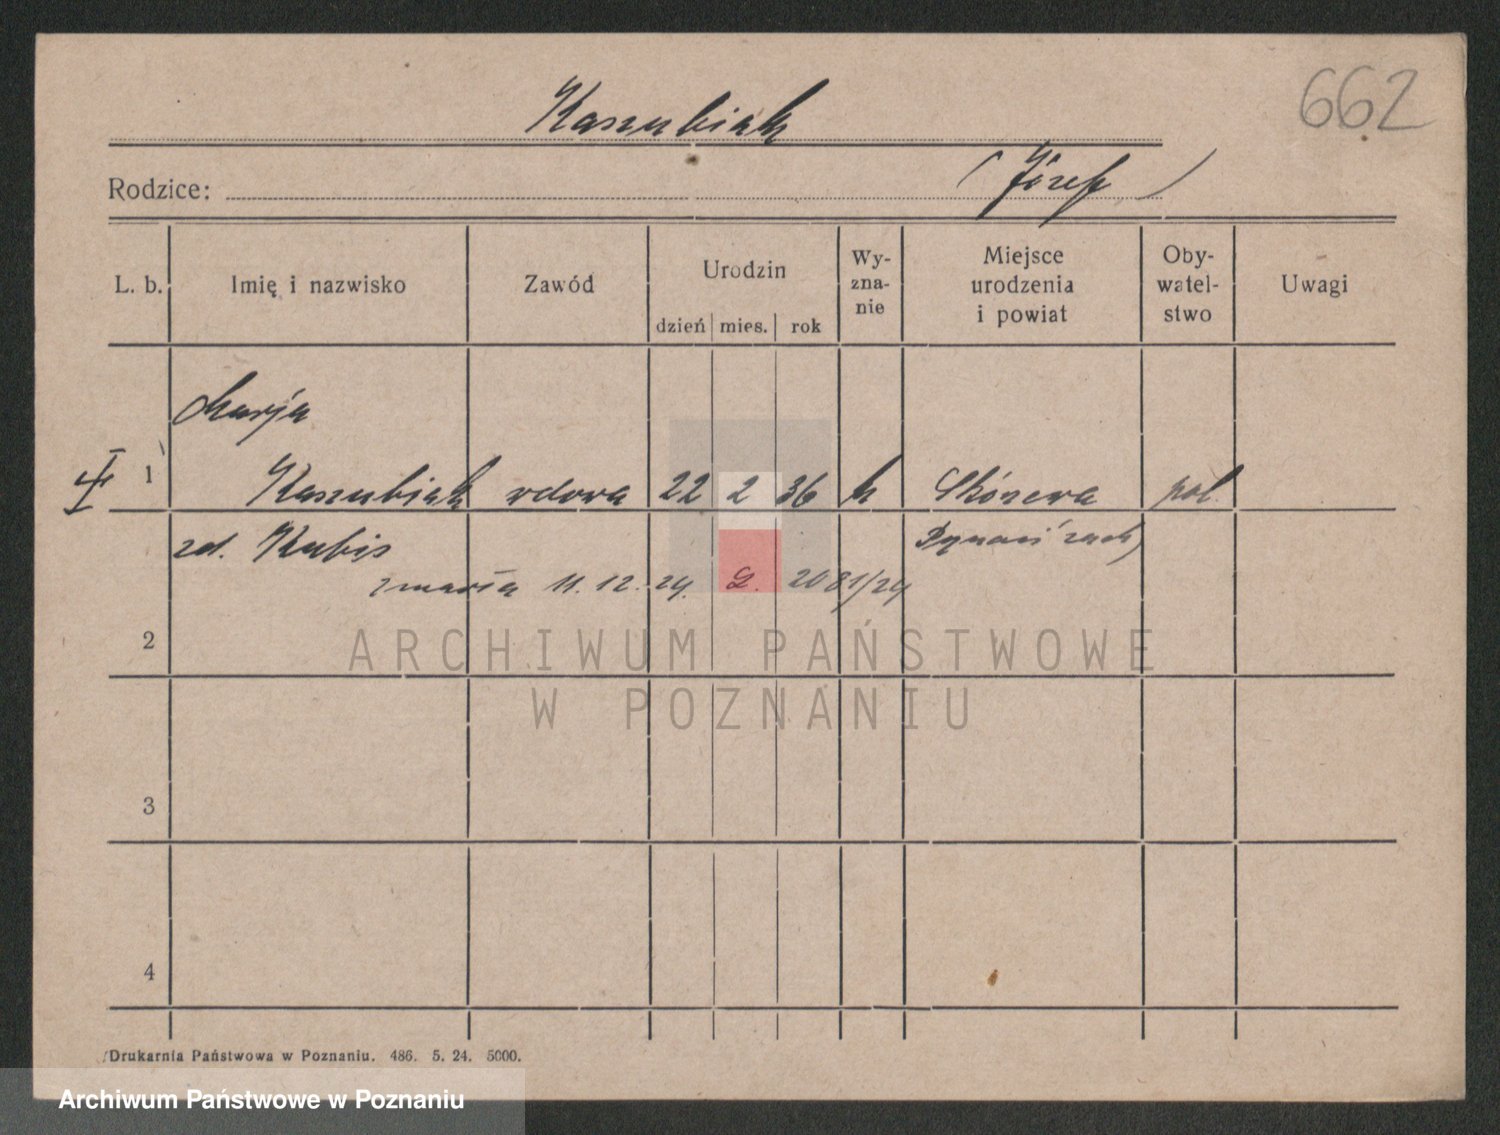 662
Kaszubiak
Rodzice: (Józef)
L. b. Imię i nazwisko Zawód Urodzin dzień mies. rok Wy-zna-nie Miejsce urodzenia i powiat Oby-watel-stwo Uwagi
Marja
1 Kaszubiak wdowa 22 2 36 k Skórzewa pol.
zd. Kubis Poznań zach)
zmarła 11. 12. 24. 2081/24
2
ARCHIWUM PAŃSTWOWE
W POZNANIU
3
4
Drukarnia Państwowa w Poznaniu. 486. 5. 24. 5000.
Archiwum Państwowe w Poznaniu